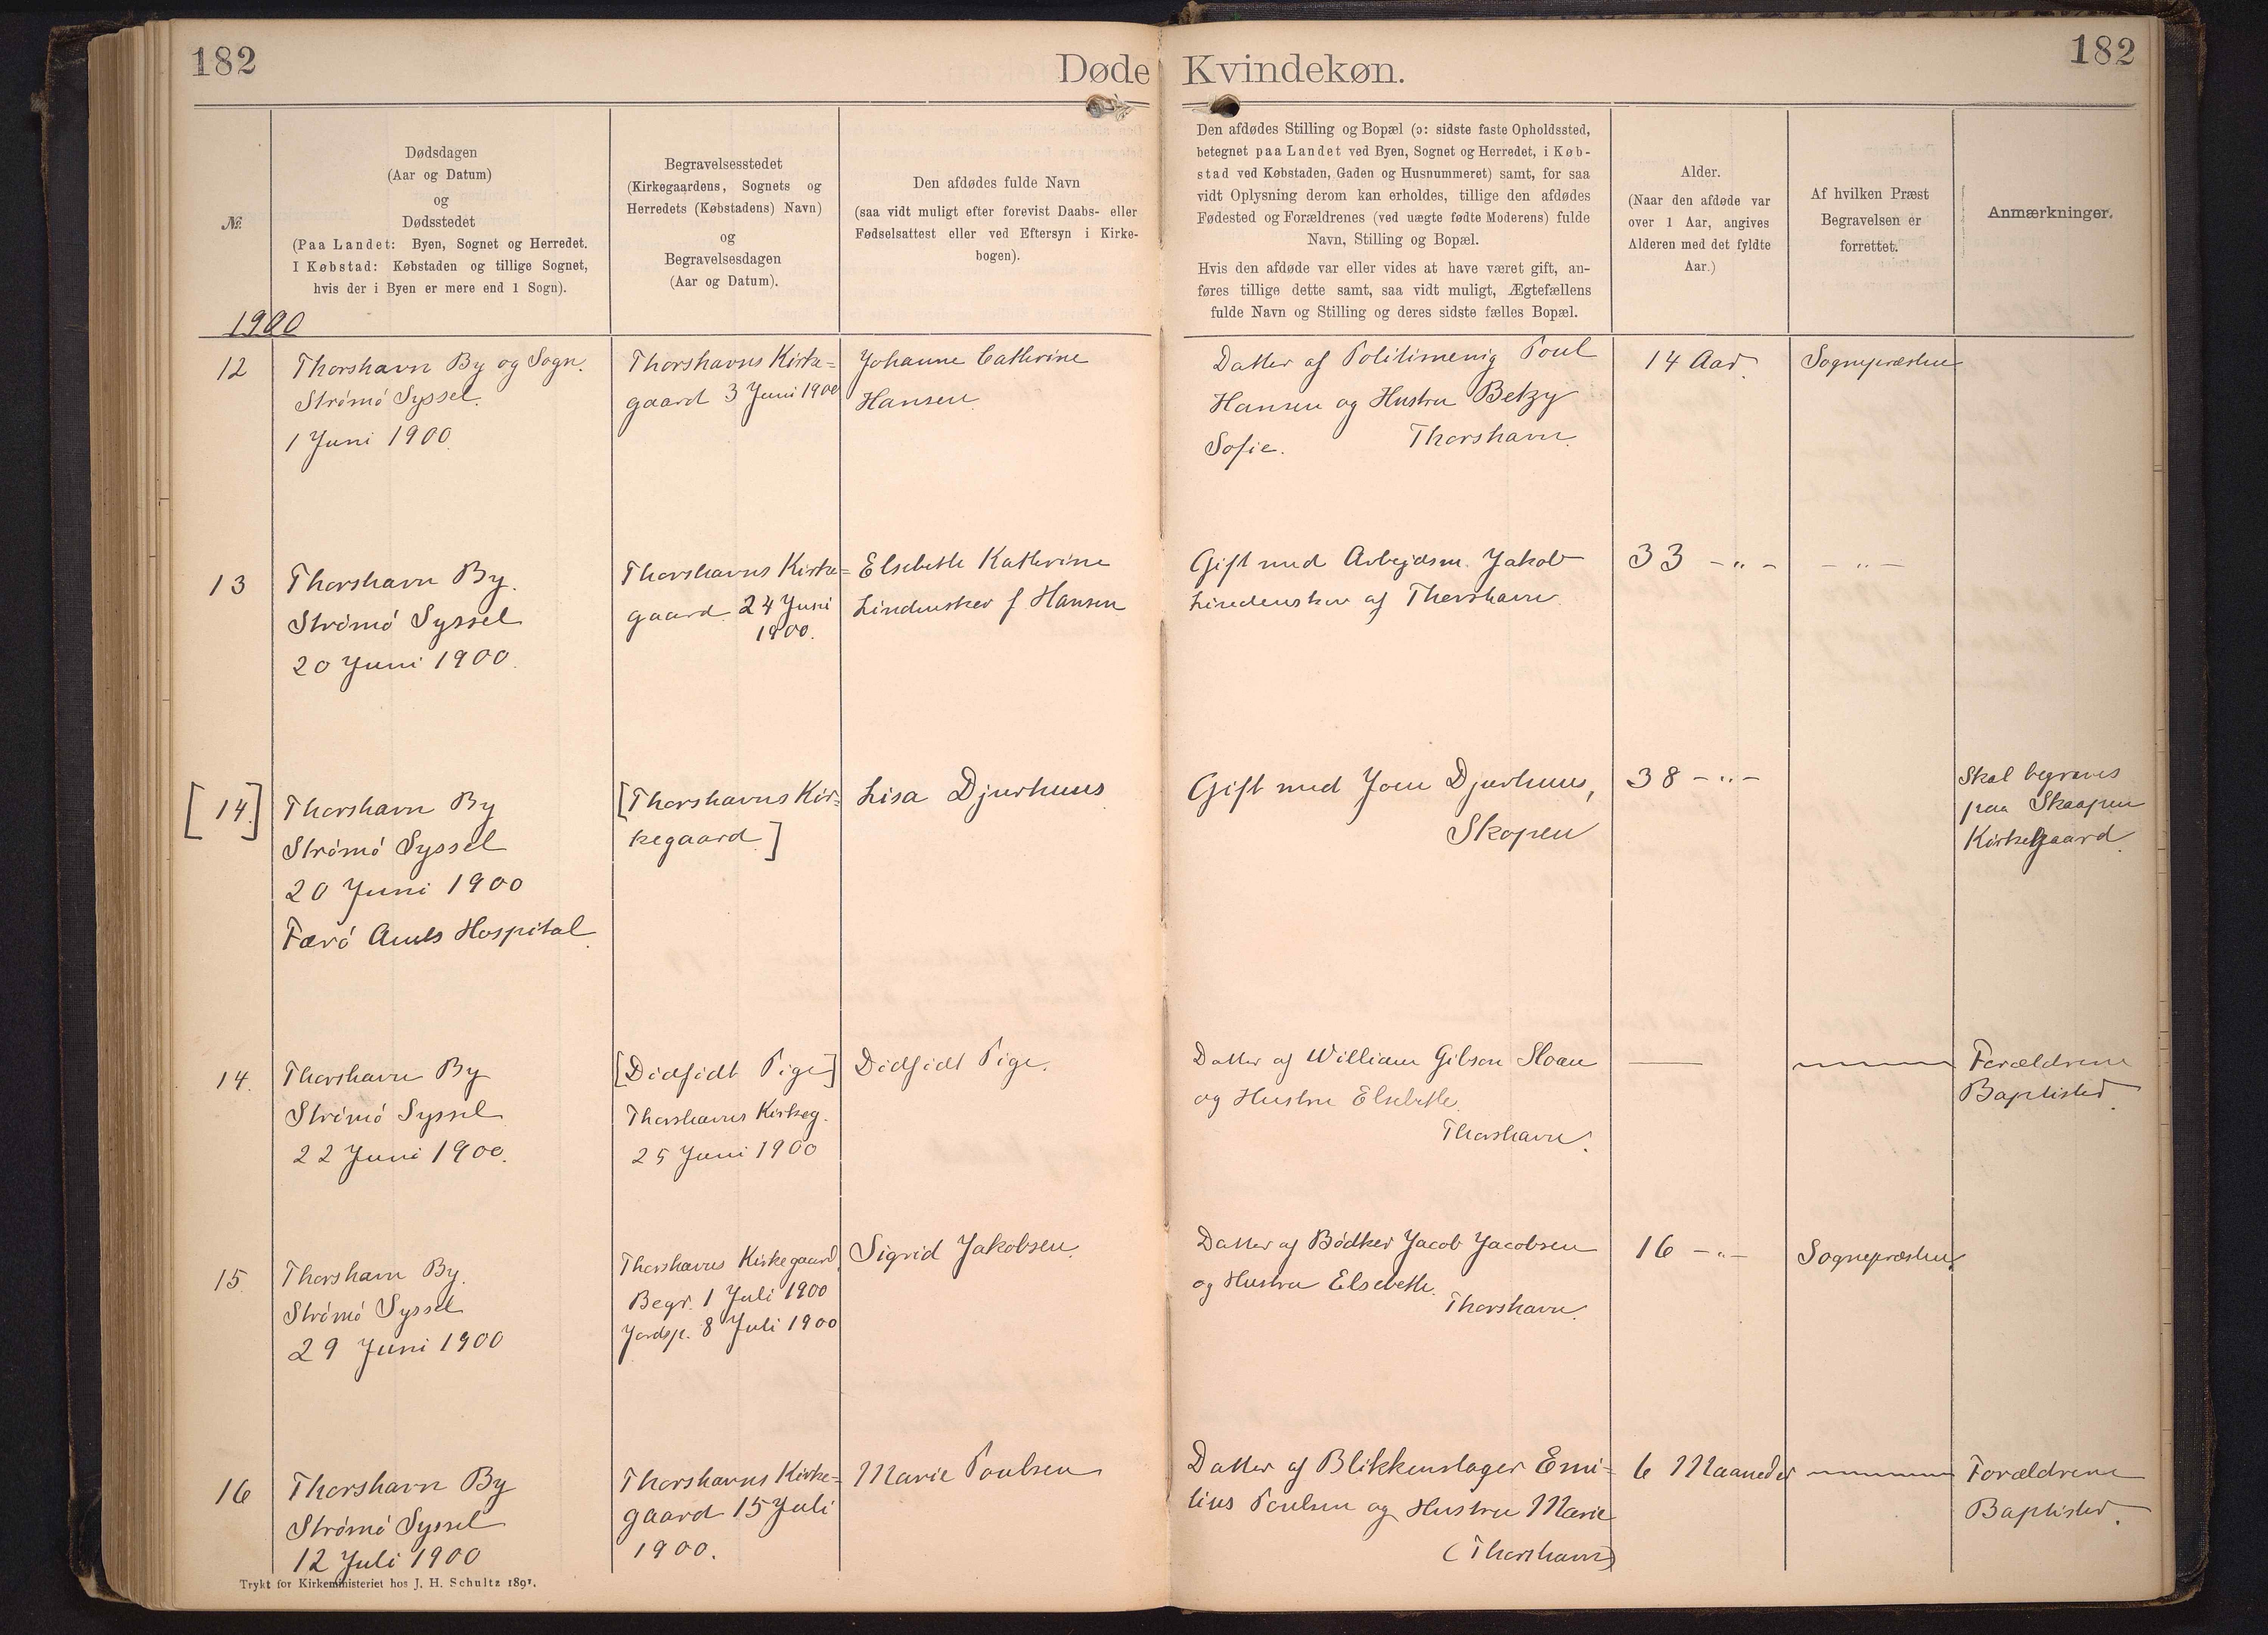 182
Døde Kvindekøn.
182
№
Dødsdagen
(Aar og Datum)
og
Dødsstedet
(Paa Landet: Byen, Sognet og Herredet.
I Købstad: Købstaden og tillige Sognet,
hvis der i Byen er mere end 1 Sogn).
Begravelsesstedet
(Kirkegaardens, Sognets og
Herredets (Købstadens) Navn)
og
Begravelsesdagen
(Aar og Datum).
Den afdødes fulde Navn
(saa vidt muligt efter forevist Daabs- eller
Fødselsattest eller ved Eftersyn i Kirke-
bogen).
Den afdødes Stilling og Bopæl (ɔ: sidste faste Opholdssted,
betegnet paa Landet ved Byen, Sognet og Herredet, i Køb-
stad ved Købstaden, Gaden og Husnummeret) samt, for saa
vidt Oplysning derom kan erholdes, tillige den afdødes
Fødested og Forældrenes (ved uægte fødte Moderens) fulde
Navn, Stilling og Bopæl.
Hvis den afdøde var eller vides at have været gift, an-
føres tillige dette samt, saa vidt muligt, Ægtefællens
fulde Navn og Stilling og deres sidste fælles Bopæl.
Alder.
(Naar den afdøde var
over 1 Aar, angives
Alderen med det fyldte
Aar.)
Af hvilken Præst
Begravelsen er
forrettet.
Anmærkninger.
1900
12
Thorshavn By og Sogn.
Strömö Syssel.
1 Juni 1900.
Thorshavns Kirke=
gaard 3 Juni 1900
Johanne Cathrine
Hansen
Datter af Politimenig Poul
Hansen og Hustru Betzy
Sofie. Thorshavn.
14 Aar.
Sognepræsten
13
Thorshavn By.
Strömö Syssel
20 Juni 1900.
Thorshavns Kirke=
gaard. 24 Juni
1900.
Elsebeth Kathrine
Lindenskov f. Hansen
Gift med Arbejdsm. Jakob
Lindenskov af Thorshavn.
33 – „ –
– „ –
[14.]
Thorshavn By
Strömö Syssel
20 Juni 1900
Færö Amts Hospital.
[Thorshavns Kir=
kegaard.]
Lisa Djurhuus
Gift med Joen Djurhuus,
Skopen
38 – „ –
Skal begraves
paa Skaapen
Kirkegaard.
14.
Thorshavn By
Strömö Syssel
22 Juni 1900.
[Dödfödt Pige]
Thorshavns Kirkeg.
25 Juni 1900
Dödfödt Pige.
Datter af William Gibson Sloan
og Hustru Elsebeth.
Thorshavn.
—
Forældrene
Baptister.
15.
Thorshavn By.
Strömö Syssel
29 Juni 1900
Thorshavns Kirkegaard.
Begr. 1 Juli 1900
Jordsp. 8 Juli 1900
Sigrid Jakobsen.
Datter af Bödker Jacob Jacobsen
og Hustru Elsebeth.
Thorshavn.
16 – „ –
Sognepræsten.
16
Thorshavn By
Strömö Syssel
12 Juli 1900
Thorshavns Kirke=
gaard 15 Juli
1900.
Marie Poulsen
Datter af Blikkenslager Emi=
lius Poulsen og Hustru Marie
(Thorshavn)
6 Maaneder
Forældrene
Baptister.
Trykt for Kirkeministeriet hos J. H. Schultz 1891.